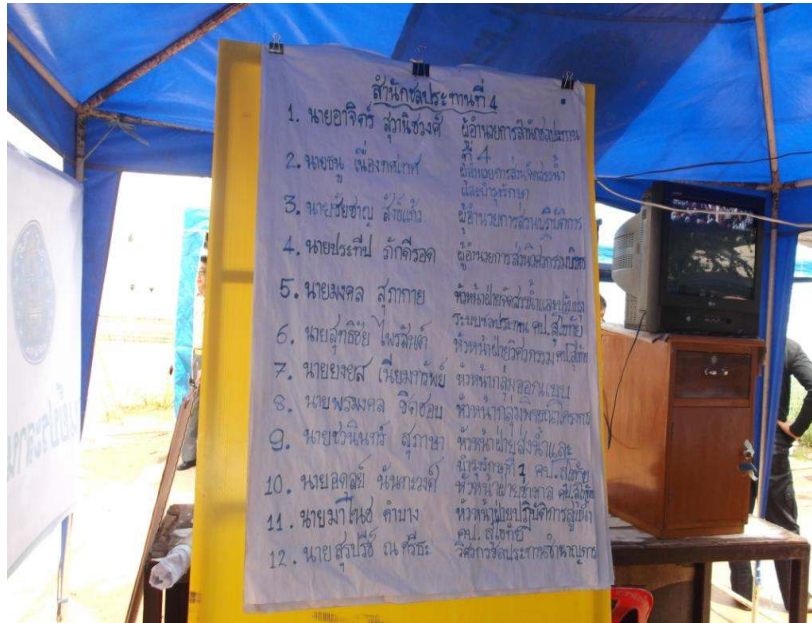 สำนักชลประทานที่ 4
1. นายอาจิตร์ สุวานิชวงศ์ ผู้อำนวยการสำนักชลประทาน
ที่ 4
2. นายธนู เนื่องทศเทศ ผู้อำนวยการส่วนจัดสรรน้ำ
และบำรุงรักษา
3. นายชัยชาญ สังข์แก้ว ผู้อำนวยการส่วนปฏิบัติการ
4. นายประทีป ภักดีรอด ผู้อำนวยการส่วนวิศวกรรมบริหาร
5. นายมงคล สุภากาย หัวหน้าฝ่ายจัดสรรน้ำและปรับปรุง
ระบบชลประทาน คป.สุโขทัย
6. นายสุทธิชัย ไพรสัณฑ์ หัวหน้าฝ่ายวิศวกรรม คป.สุโขทัย
7. นายยงยส เนียมทรัพย์ หัวหน้ากลุ่มออกแบบ
8. นายพรมงคล ชิดชอบ หัวหน้ากลุ่มพิจารณาโครงการ
9. นายชวนินทร์ สุภาษา หัวหน้าฝ่ายส่งน้ำและ
บำรุงรักษาที่ 1 คป.สุโขทัย
10. นายอดุลย์ นันทะวงศ์ หัวหน้าฝ่ายช่างกล คป.สุโขทัย
11. นายมาโนช คำบาง หัวหน้าฝ่ายปฏิบัติการสูบน้ำ
คป.สุโขทัย
12. นายสุรปรีช์ ณ ศรีธะ วิศวกรชลประทานชำนาญการ